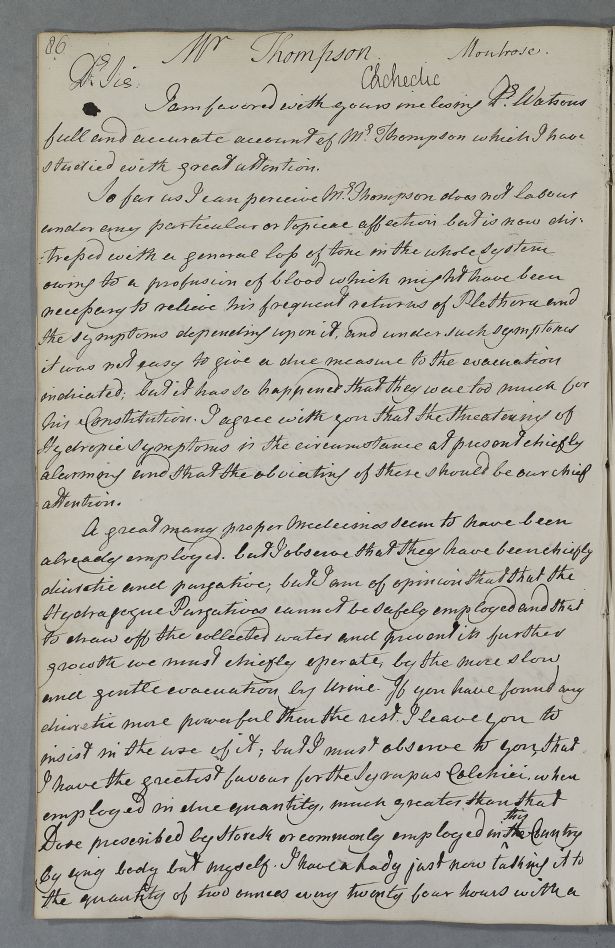 86
Mr Thompson Montrose.
Chchectic
Dr. Sir.
I am favored with yours inclosing Dr. Watsons
full and accurate account of Mr. Thompson which I have
studied with great attention.
So far as I can perceive Mr. Thompson does not labour
under any particular or topical affection but is now dis-
:tressed with a general loss of tone in the whole system
owing to a profusion of blood which might have been
necessary to relieve his frequent returns of Plethora and
the symptoms depending upon it, and under such symptoms
it was not easy to give a due measure to the evacuation
indicated; but it has so happened that they were too much for
his Constitution. I agree with you that the threatening of
Hydropic symptoms is the circumstance at present chiefly
alarming and that the obviating of these should be our chief
attention.
A great many proper Medicines seem to have been
already employed. but I observe that they have been chiefly
diuretic and purgative; but I am of opinion that that the
Hydragogue Purgatives cannot be safely employed and that
to draw off the collected water and prevent its further
growth we must chiefly operate, by the more slow
and gentle evacuation by Urine. If you have found any
diuretic more powerful then the rest I leave you to
insist in the use of it; but I must observe to you, that
I have the greatest favour for the Syrupus Colchici, when
employed in due quantity, much greater than that
Dose prescribed by Storck or commonly employed in the this Country
by any body but myself. I have a Lady just now taking it to
the quantity of two ounces every twenty four hours with a